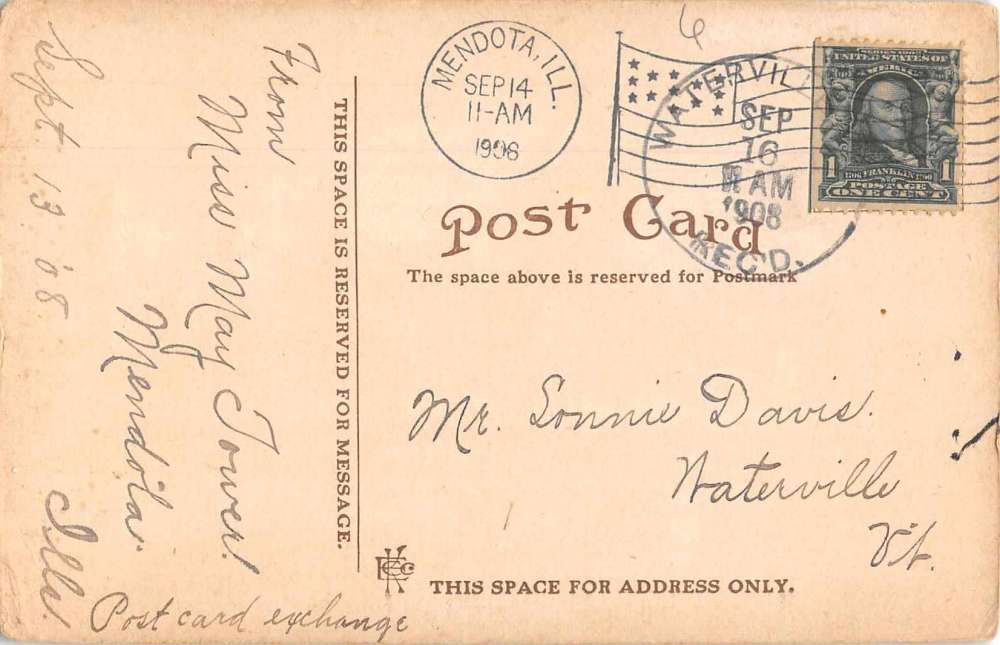 6
MENDOTA, ILL.
SEP 14
11-AM
1908
WATERVILL
SEP
16
AM
1908
REC'D.
SERIES 1902
UNITED STATES OF
AMERICA
1 1
1706 FRANKLIN 1790
POSTAGE
ONE CENT
Post Card
The space above is reserved for Postmark
THIS SPACE IS RESERVED FOR MESSAGE.
From
Miss May Tower.
Mendota.
Ills.
Sept. 13 '08
Post card exchange
Mr. Lonnie Davis.
Waterville
Vt.
THIS SPACE FOR ADDRESS ONLY.